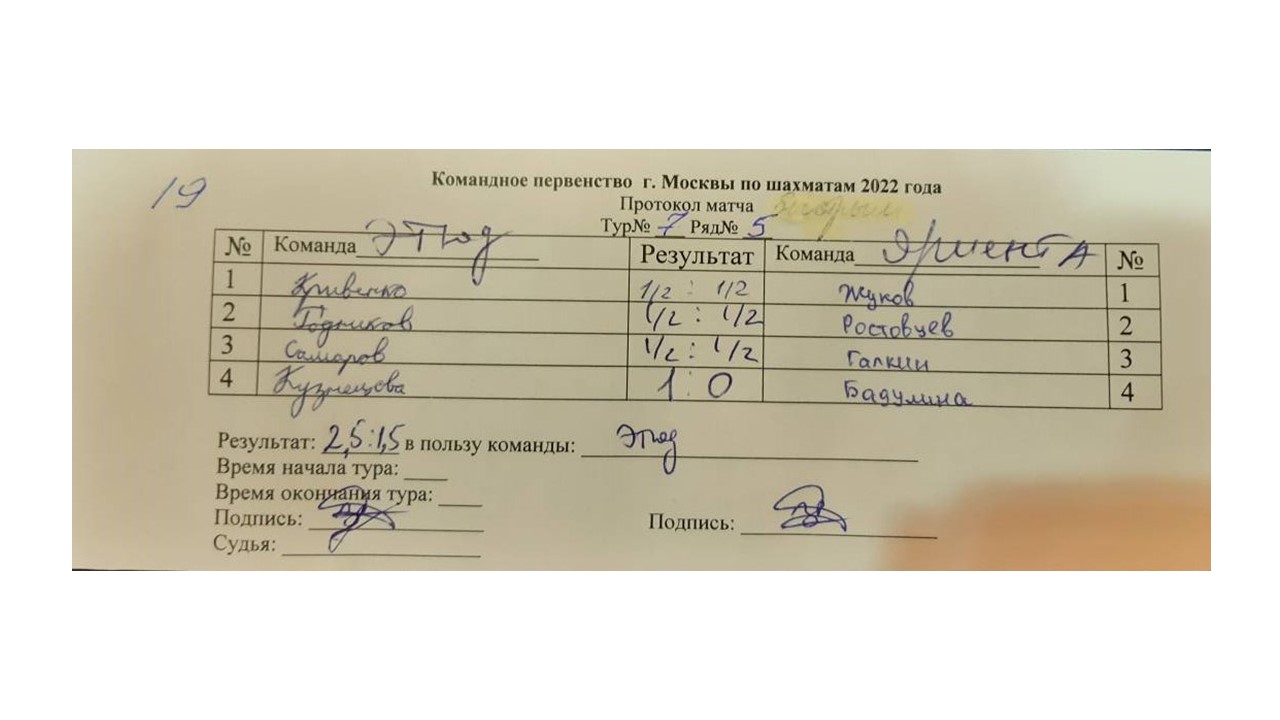 19
Командное первенство г. Москвы по шахматам 2022 года
Протокол матча
Тур№ 7 Ряд№ 5
№ Команда Этюд Результат Команда №
1 Кривенко 1/2 : 1/2 Жуков 1
2 Годников 1/2 : 1/2 Ростовцев 2
3 Самаров 1/2 : 1/2 Галкин 3
4 Кузнецова 1 : 0 Бадулина 4
Результат: 2,5:1,5 в пользу команды: Этюд
Время начала тура:
Время окончания тура:
Подпись: Подпись:
Судья: